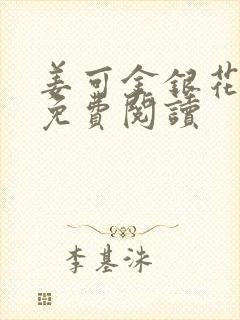 姜可金銀花
免費閱讀
李基洙